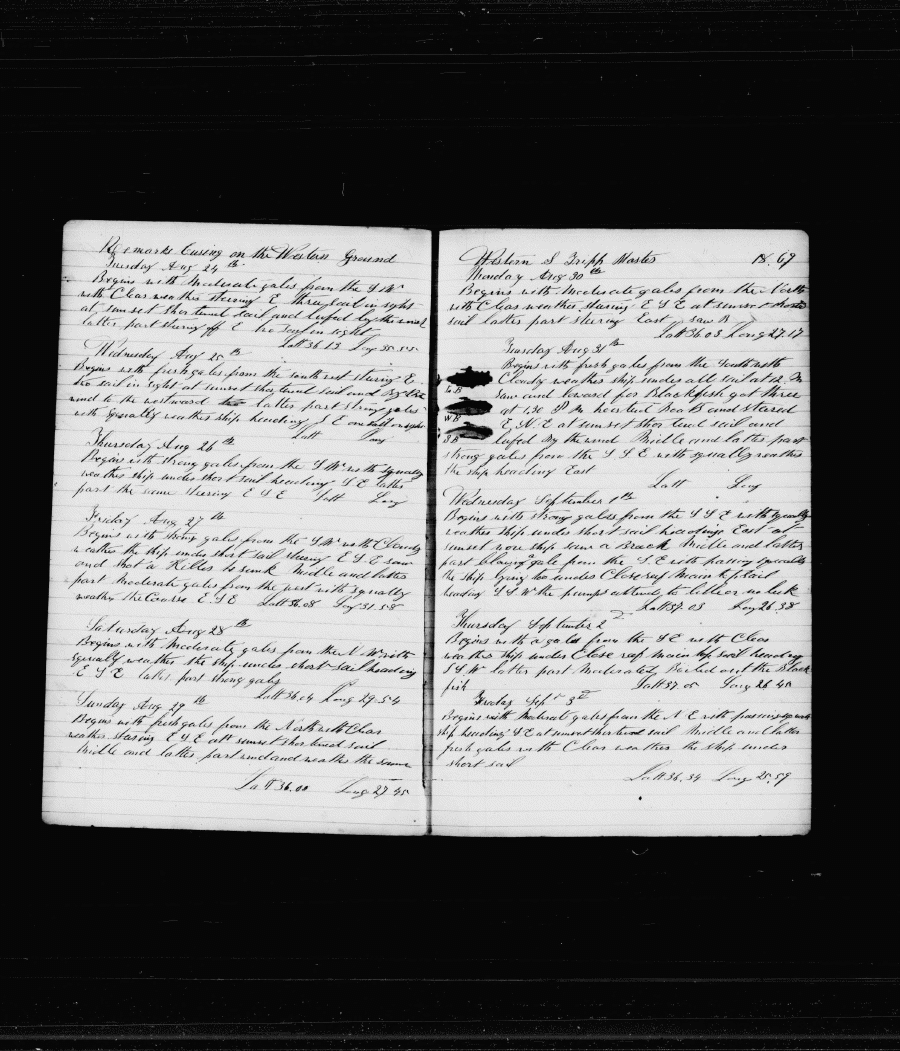 Remarks Cusing on the Western Ground
Tuesday Aug 24 th
Begins with Moderate gales from the S W
with Clear weather steering E three sail in sight
at sunset shortened sail and luffed by the wind
latter part steering off E two sail in sight
Latt 36.13 Long 35.55
Wednesday Aug 25 th
Begins with fresh gales from the south west stering E
two sail in sight at sunset shortened sail and by the
wind to the westward latter part strong gales
with squally weather ship heading S E one sail in sight
Latt Long
Thursday Aug 26 th
Begins with strong gales from the S W with squally
weather ship under short sail heading S E latter
part the same steering E S E Latt Long
Friday Aug 27 th
Begins with strong gales from the S W with Cloudy
weather the ship under short sail stering E S E saw
and shot a Killer he sunk Midle and latter
part Moderate gales from the west with squally
weather the Course E S E Latt 36.08 Long 31.58
Saturday Aug 28 th
Begins with Moderate gales from the N W with
squally weather the ship under short sail heading
E S E latter part strong gales
Latt 36.04 Long 29.54
Sunday Aug 29 th
Begins with fresh gales from the North with Clear
weather staring E S E att sunset shortened sail
Midle and latter part wind and weather the same
Latt 36.00 Long 27.45
Western S Tripp Master 18.69
Monday Aug 30 th
Begins with Moderate gales from the North
with Clear weather staring E S E at sunset shorted
sail latter part stering East saw B
Latt 36.03 Long 27.17
Tuesday Aug 31 th
Begins with fresh gales from the South with
Cloudy weather ship under all sail at 12 M
Saw and lowerd for Blackfish got three
at 1.30 P M hoisted boats and stared
E N E at sunset shortned sail and
lufed By the wind Midle and latter part
strong gales from the S S E with squally weather
the ship heading East
L B
W B
S B
Latt Long
Wednesday September 1 th
Begins with strong gales from the S S E with squally
weather ship under short sail heading East at
sunset wore ship saw a Brack Midle and latter
part blowing gale from the S E with passing squalls
the ship lying too under Close reef Main topsail
heading S S W the pumps attended to little or no leek
Latt 37.03 Long 26.38
Thursday September 2 d
Begins with a gale from the S E with Clear
weather ship under Close reef main top sail heading
S S W latter part Moderated Boiled out the Black
fish Latt 37.05 Long 26.45
Friday Sept 3 d
Begins with moderate gales from the N E with passing squalls
ship heading S E at sunset shortened sail Midle and latter
fresh gales with Clear weather the ship under
short sail
Latt 36.34 Long 25.59